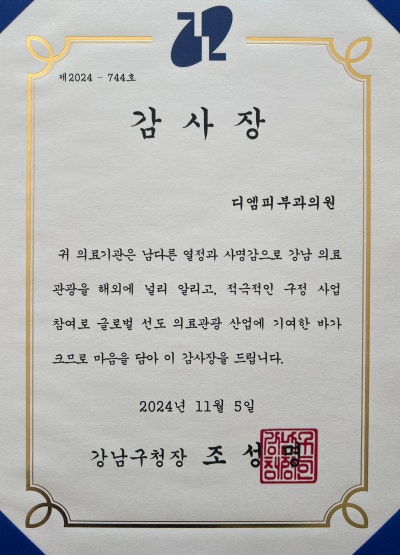 제2024 - 744호
감 사 장
디엠피부과의원
귀 의료기관은 남다른 열정과 사명감으로 강남 의료
관광을 해외에 널리 알리고, 적극적인 구정 사업
참여로 글로벌 선도 의료관광 산업에 기여한 바가
크므로 마음을 담아 이 감사장을 드립니다.
2024년 11월 5일
강남구청장 조 성 명